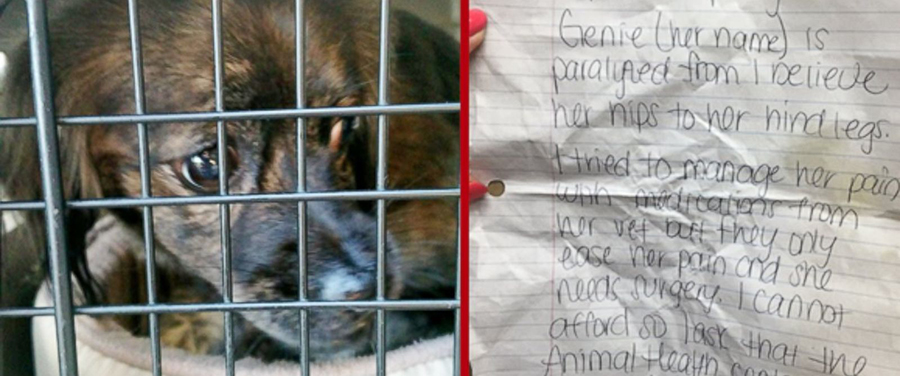 Genie (her name) is
paralyzed from I believe
her hips to her hind legs.
I tried to manage her pain
with medications from
her vet but they only
ease her pain and she
needs surgery. I cannot
afford so I ask that the
Animal Health